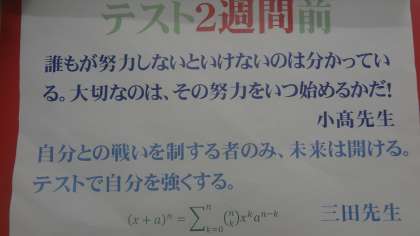 テスト2週間前
誰もが努力しないといけないのは分かってい
る。大切なのは、その努力をいつ始めるかだ!
小髙先生
自分との戦いを制する者のみ、未来は開ける。
テストで自分を強くする。
(x + a)^n = ∑_{k=0}^{n} \binom{n}{k} x^k a^{n-k}
三田先生